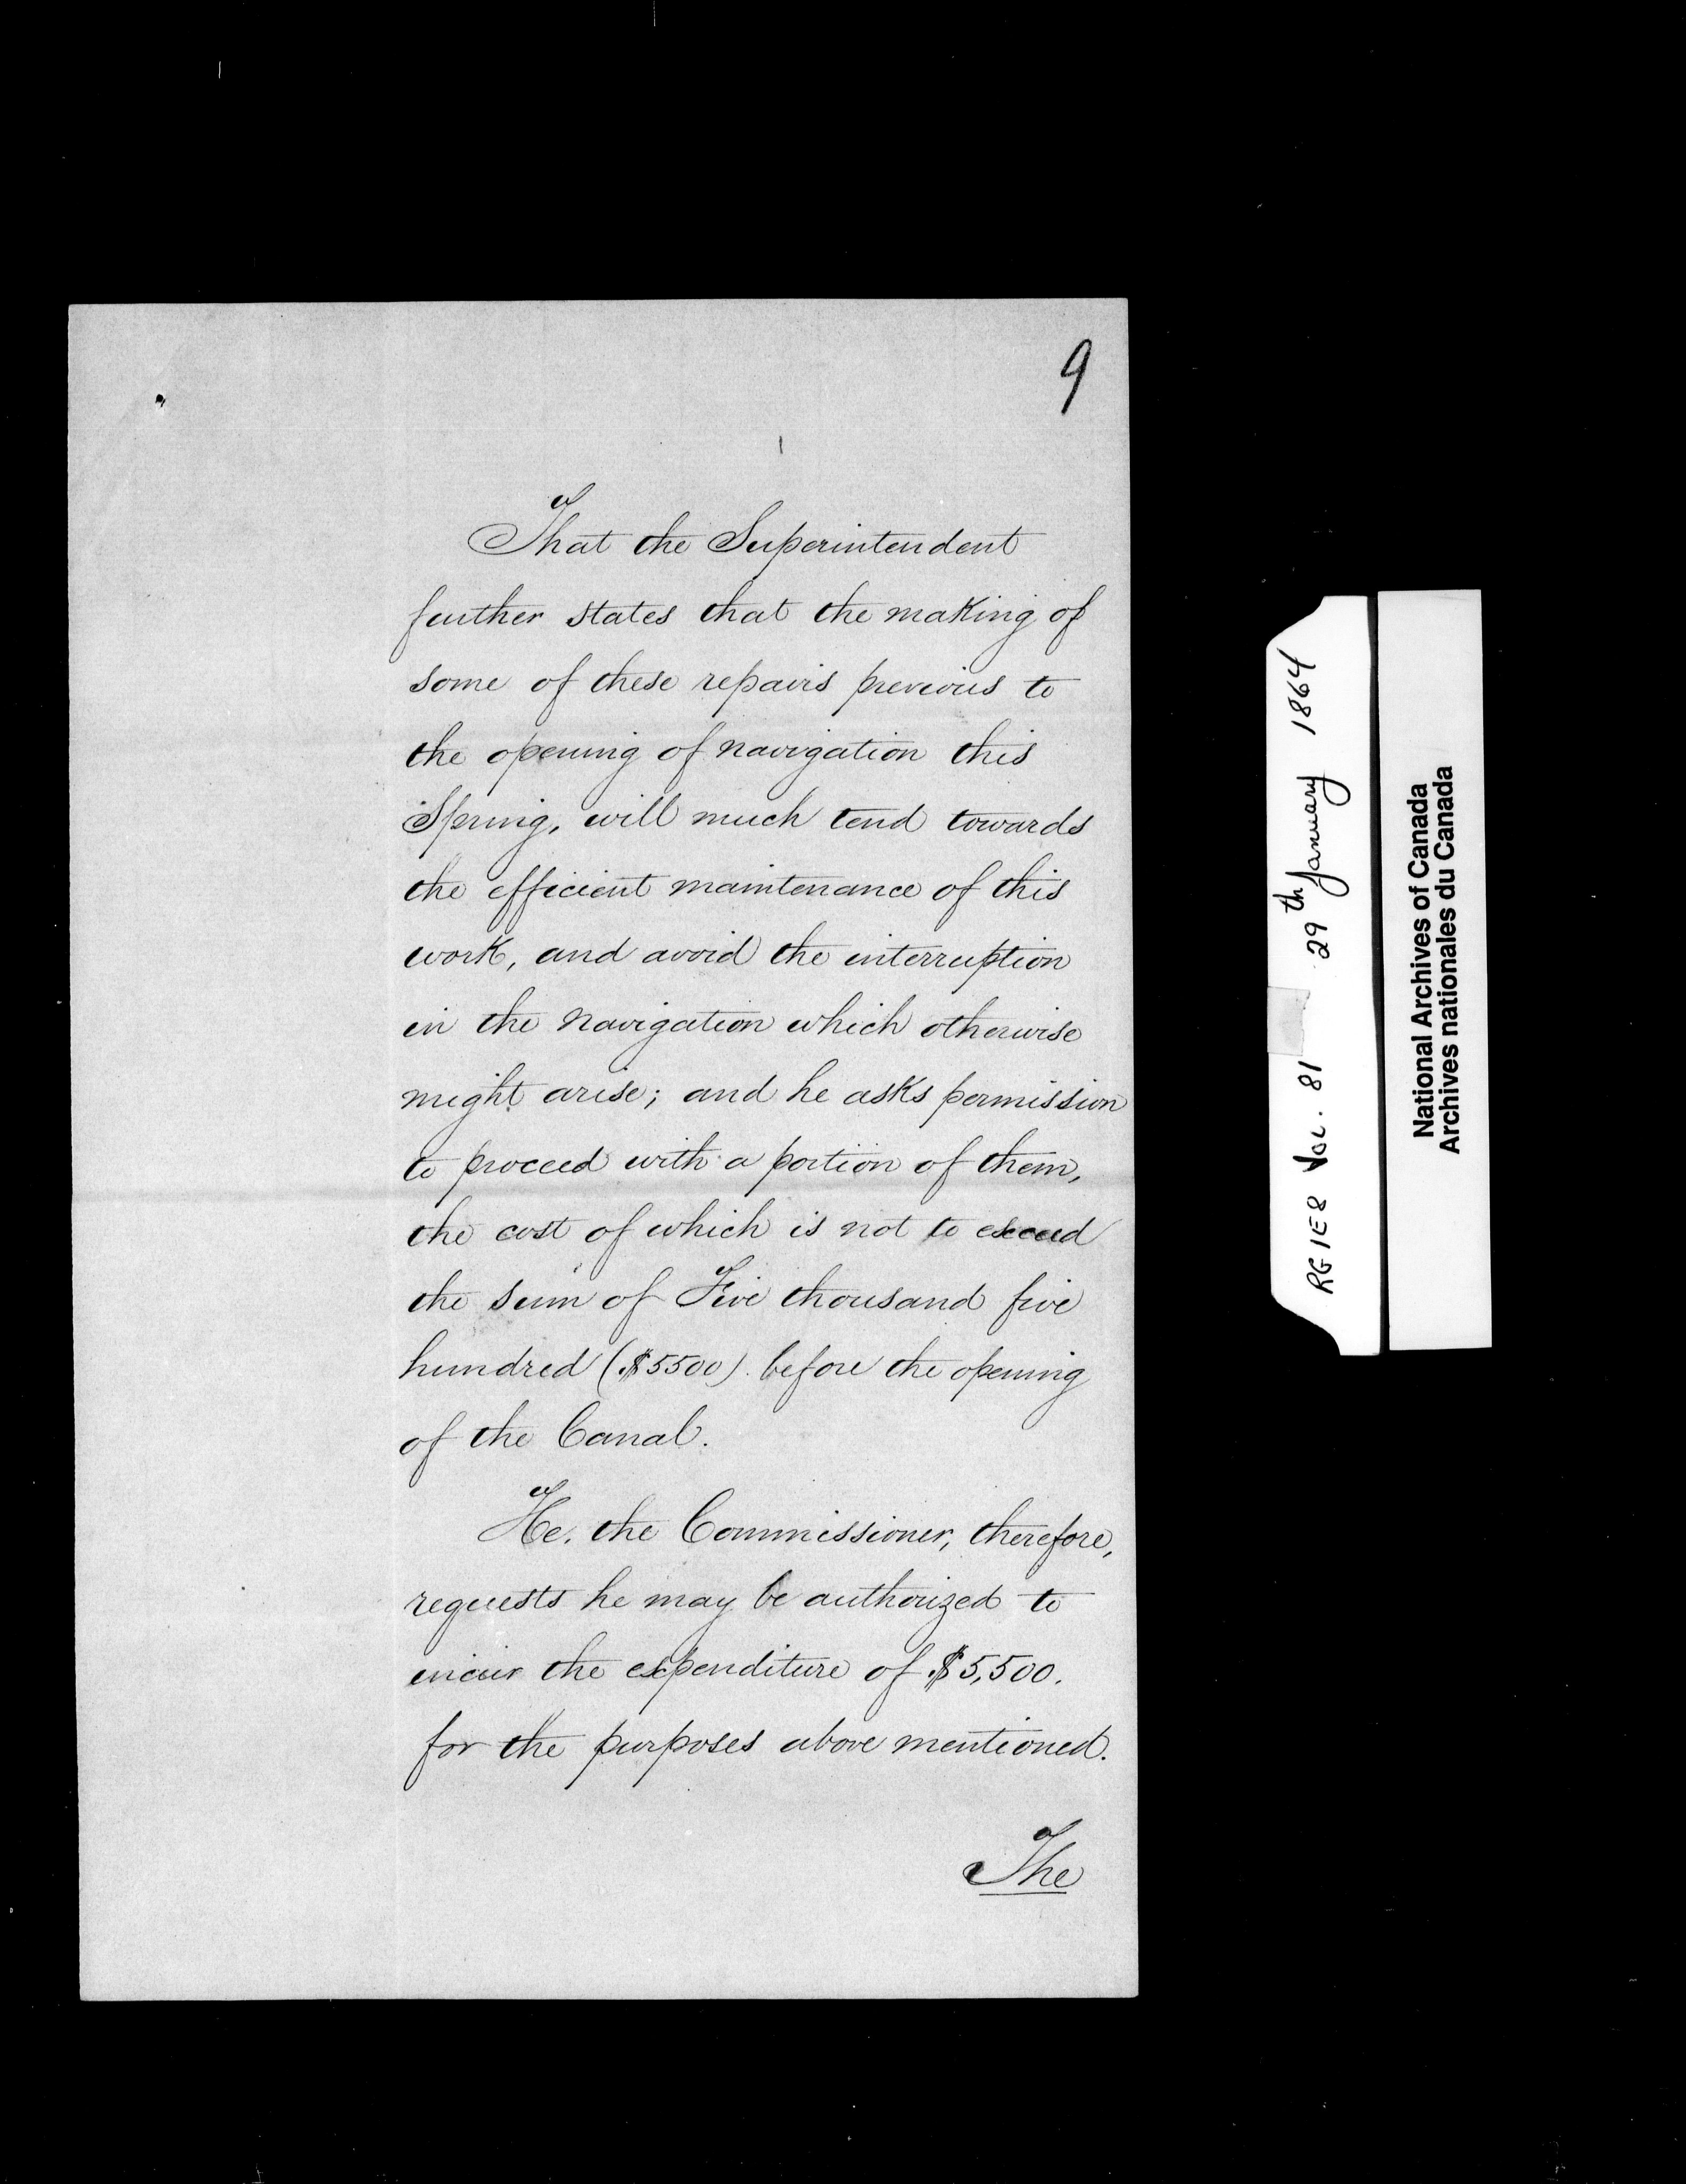 9
That the Superintendent
further states that the making of
some of these repairs previous to
the opening of navigation this
Spring, will much tend towards
the efficient maintenance of this
work, and avoid the interruption
in the navigation which otherwise
might arise; and he asks permission
to proceed with a portion of them,
the cost of which is not to exceed
the sum of Five thousand five
hundred ($5500). before the opening
of the Canal.
He, the Commissioner, therefore,
requests he may be authorized to
incur the expenditure of $5,500.
for the purposes above mentioned.
The
RG 1E8 Vol. 81 29th January 1864
National Archives of Canada
Archives nationales du Canada